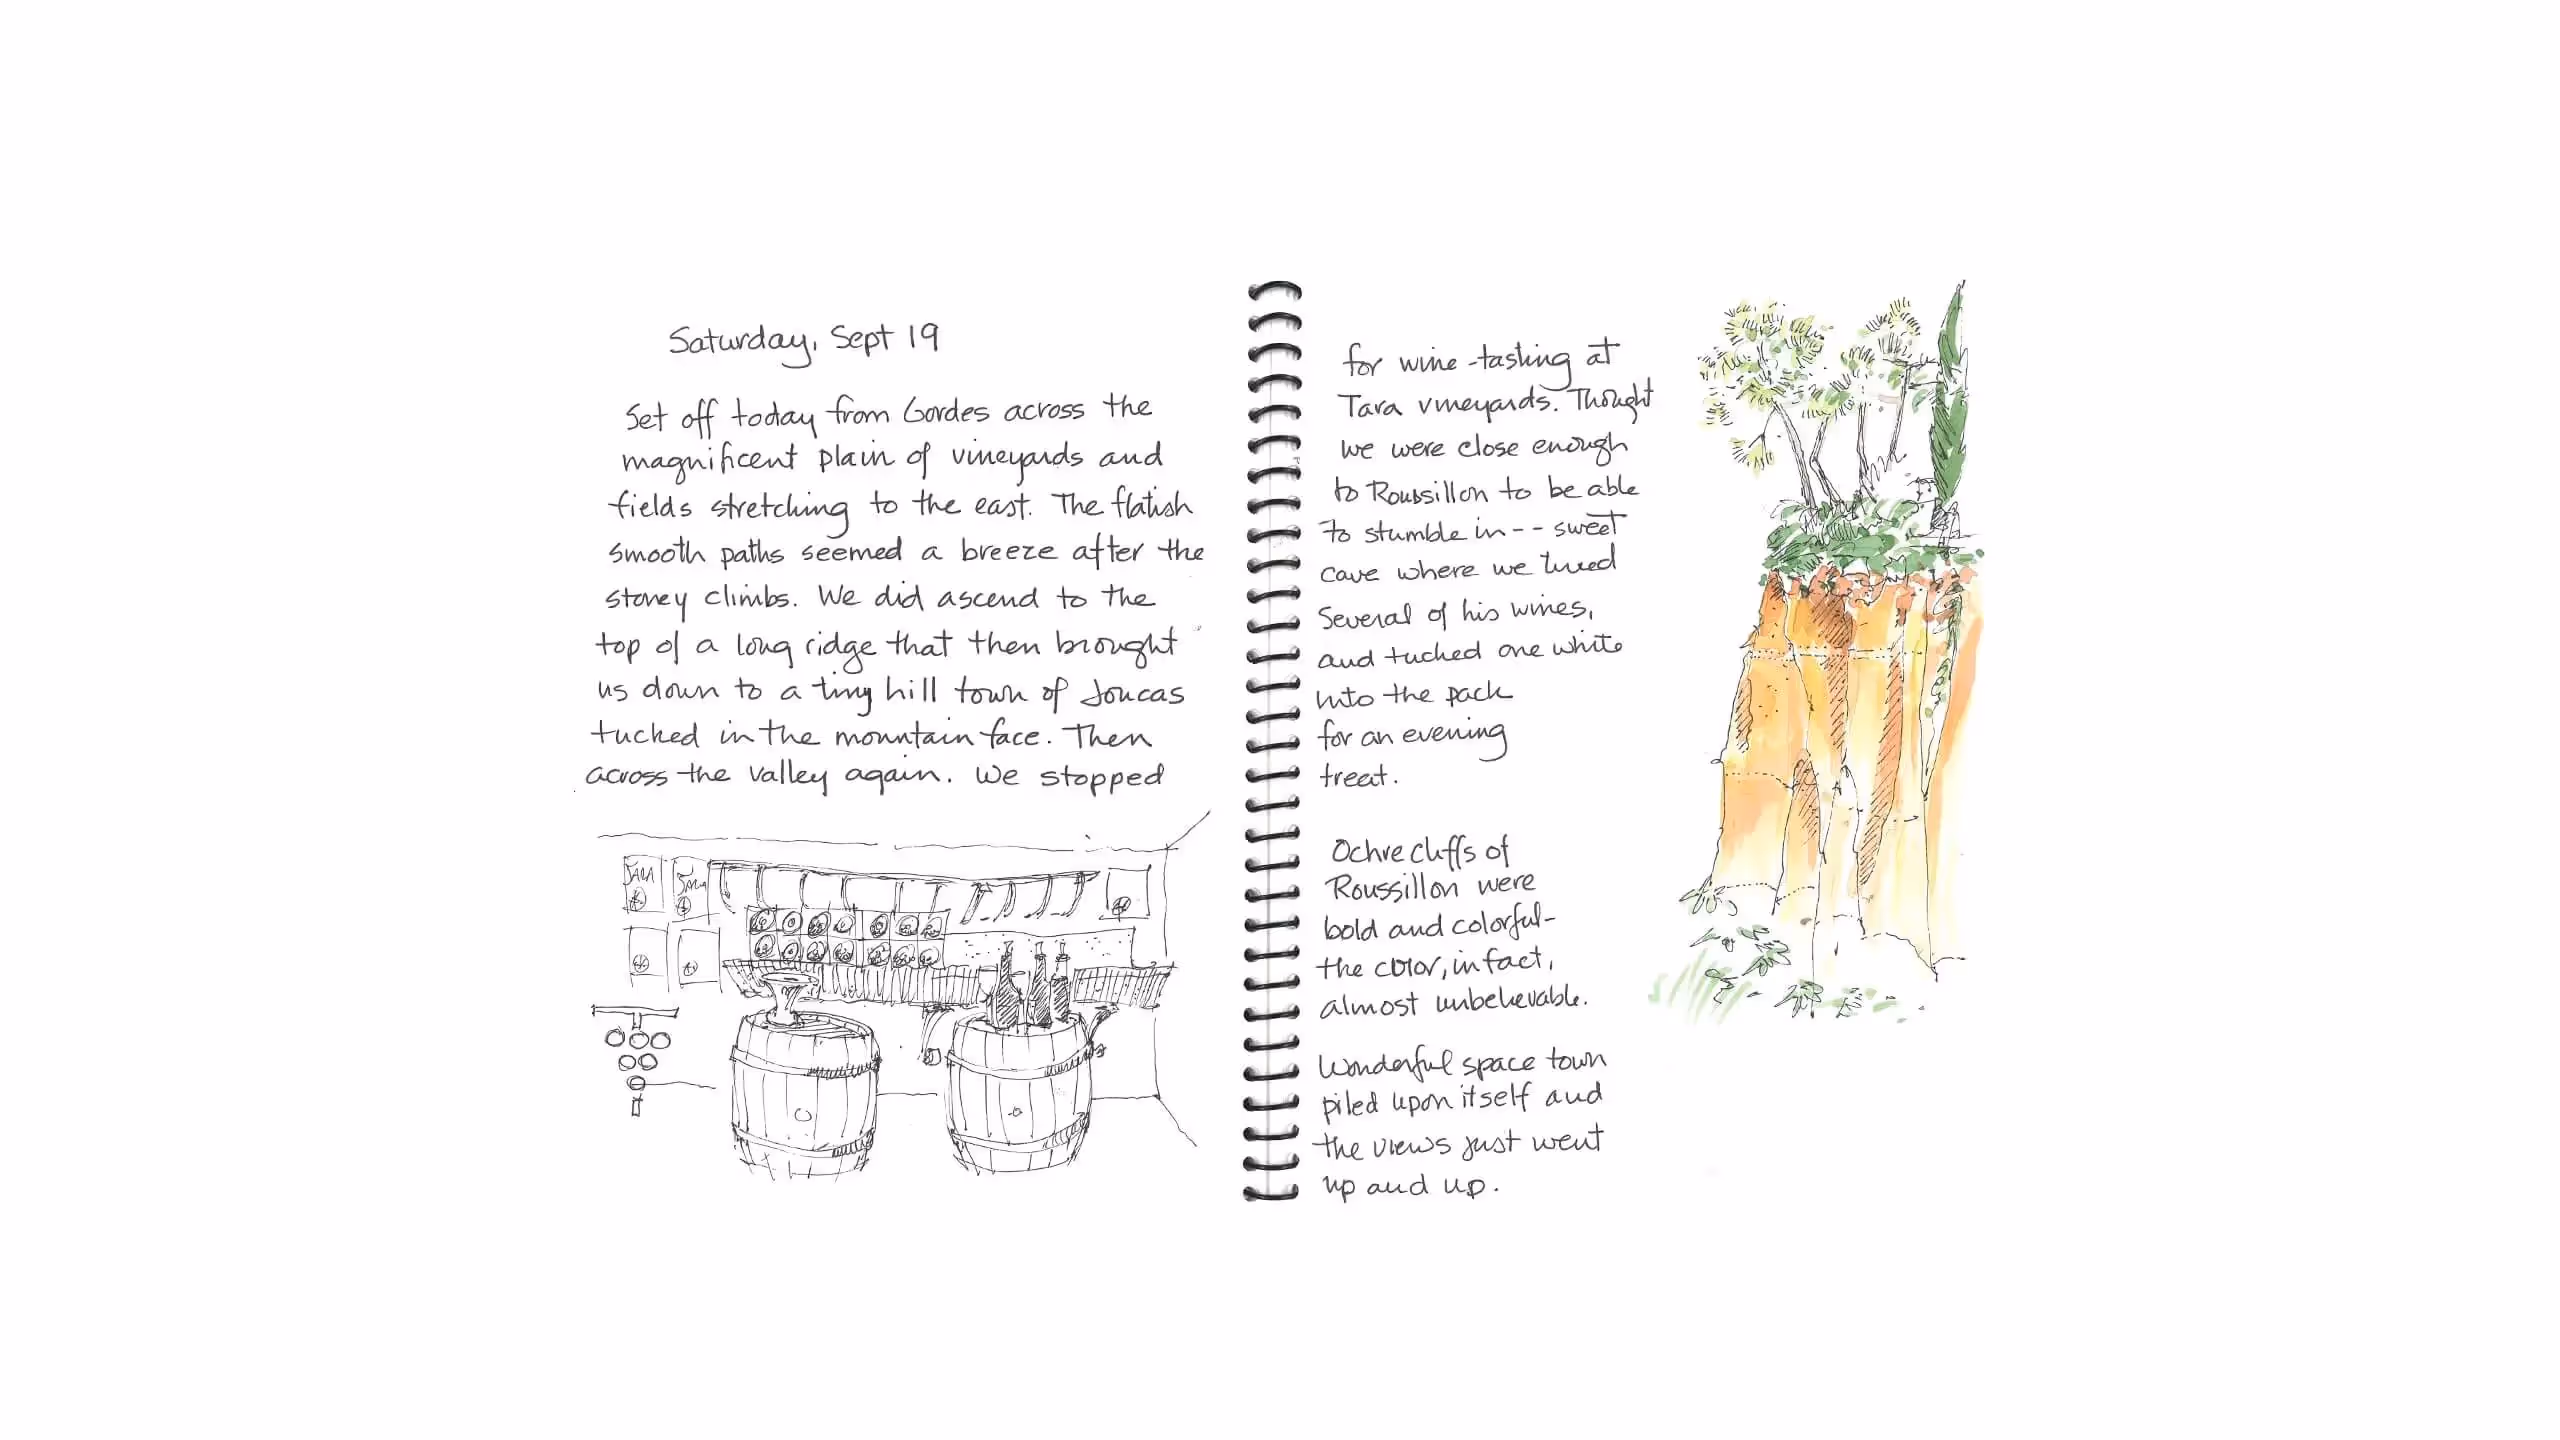 Saturday, Sept 19
Set off today from Gordes across the
magnificent plain of vineyards and
fields stretching to the east. The flatish
smooth paths seemed a breeze after the
stoney climbs. We did ascend to the
top of a long ridge that then brought
us down to a tiny hill town of Joucas
tucked in the mountain face. Then
across the valley again. We stopped
TARA
for wine-tasting at
Tara vineyards. Thought
we were close enough
to Roussillon to be able
to stumble in -- sweet
cave where we tried
several of his wines,
and tucked one white
into the pack
for an evening
treat.
Ochre cliffs of
Roussillon were
bold and colorful-
the color, in fact,
almost unbelievable.
Wonderful space town
piled upon itself and
the views just went
up and up.